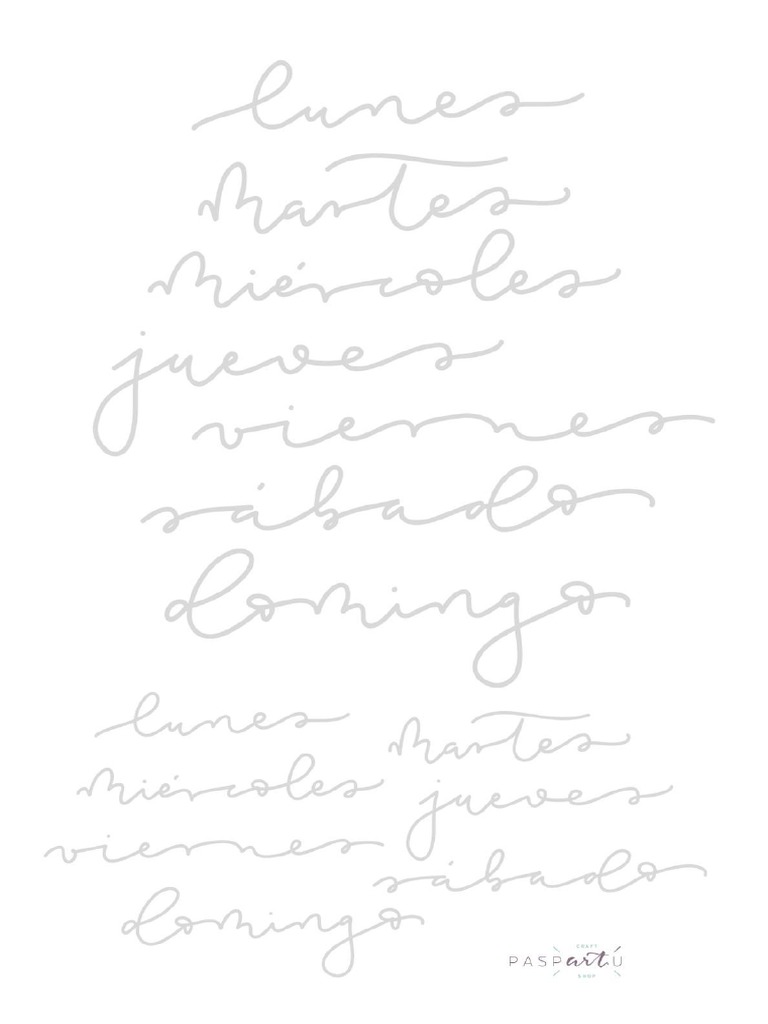 lunes
martes
miércoles
jueves
viernes
sábado
domingo
lunes
martes
miércoles
jueves
viernes
sábado
domingo
CRAFT
PASPartÚ
SHOP